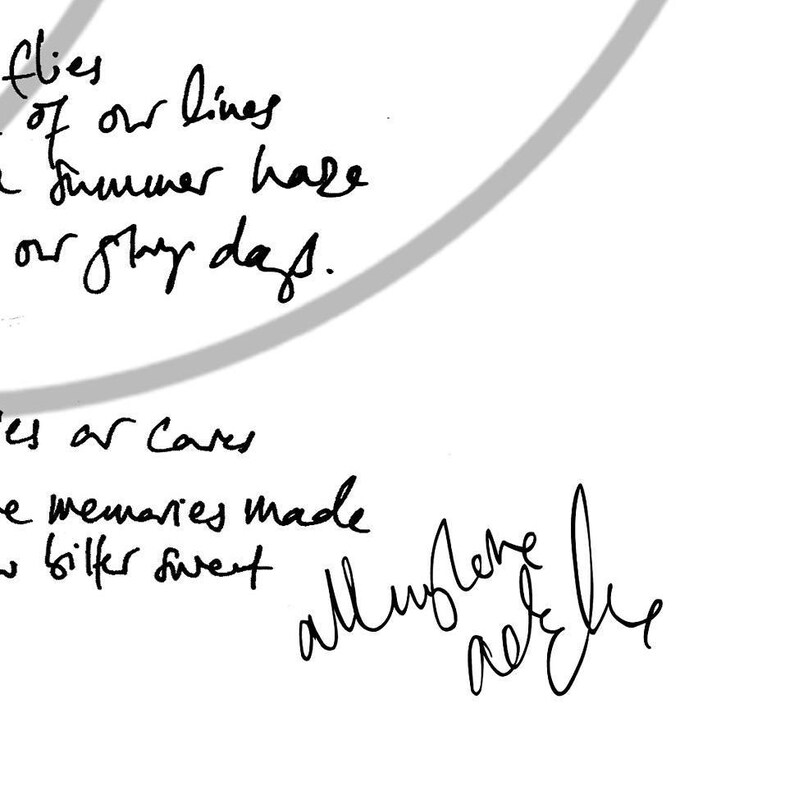 flies
of our lines
summer haze
our glory days.
es or cares
e memories made
bitter sweet
all my love
adele